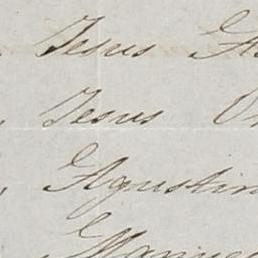 Jesus
Jesus
Agustin
Manue